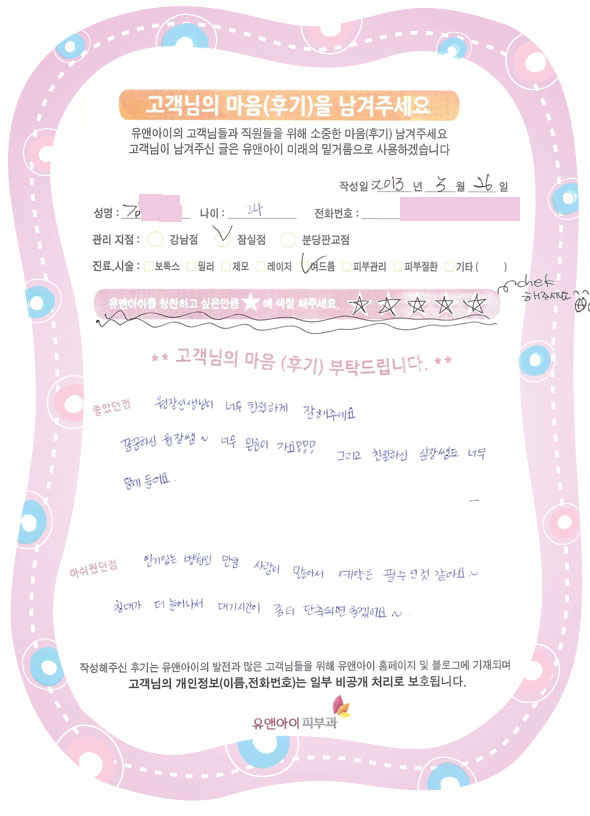 고객님의 마음(후기)을 남겨주세요
유앤아이의 고객님들과 직원들을 위해 소중한 마음(후기) 남겨주세요
고객님이 남겨주신 글은 유앤아이 미래의 밑거름으로 사용하겠습니다
작성일 2013 년 3 월 26 일
성명 : 나이 : 24 전화번호 :
관리 지점 : 강남점 잠실점 분당판교점
진료,시술 : 보톡스 필러 제모 레이저 여드름 피부관리 피부질환 기타 ( )
유앤아이를 칭찬하고 싶은만큼 ★ 에 색칠 해주세요. ☆ ☆ ☆ ☆ ☆
chek
해주세요 ^^
** 고객님의 마음 (후기) 부탁드립니다. **
좋았던점 원장선생님이 너무 친절하게 잘해주세요
꼼꼼하신 원장쌤~ 너무 믿음이 가요!!! 그리고 친절하신 실장쌤도 너무
맘에 들어요.
아쉬웠던점 인기있는 병원인 만큼 사람이 많아서 예약은 필수인것 같아요~
침대가 더 늘어나서 대기시간이 좀더 단축되면 좋겠어요~.
작성해주신 후기는 유앤아이의 발전과 많은 고객님들을 위해 유앤아이 홈페이지 및 블로그에 기재되며
고객님의 개인정보(이름,전화번호)는 일부 비공개 처리로 보호됩니다.
유앤아이 피부과